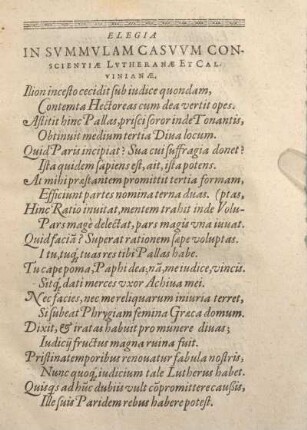 ELEGIA
IN SVMMVLAM CASVVM CON-
SCIENTIÆ LVTHERANÆ ET CAL-
VINIANÆ,
Ilion incesto cecidit sub iudice quondam,
Contemta Hectoreas cum dea vertit opes.
Astitit hinc Pallas, prisci soror inde Tonantis,
Obtinuit medium tertia Diua locum.
Quid Paris incipiat? Sua cui suffragia donet?
Ista quidem sapiens est, ait, ista potens.
At mihi præstantem promittit tertia formam,
Efficiunt partes nomina terna duas. (ptas,
Hinc Ratio inuitat, mentem trahit inde Volu-
Pars magè delectat, pars magis vna iuuat.
Quid faciā? Superat rationem sæpe voluptas.
I tu, tuq́; tuas res tibi Pallas habe.
Tu cape poma, Paphi dea; nā, me iudice, vincis.
Sitq́; dati merces vxor Achiua mei.
Nec facies, nec me reliquarum iniuria terret,
Si subeat Phrygiam femina Græca domum.
Dixit, & iratas habuit pro munere diuas;
Iudicij fructus magna ruina fuit.
Pristina temporibus renouatur fabula nostris,
Nunc quoq́; iudicium tale Lutherus habet.
Quisq́s ad hūc dubiis vult cōpromittere caussis,
Ille suis Paridem rebus habere potest.